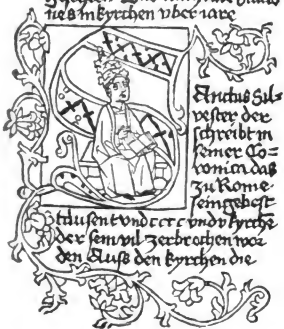 nes in kyrchen vber iare
Sanctus Sil=
vester der
schreibt in
seiner Co=
ronica das
zu Rome
sein gebest
tausent vnd cccc vnd v kyrche
der sein vil zerbrochen wor
den Auß den kyrchen die